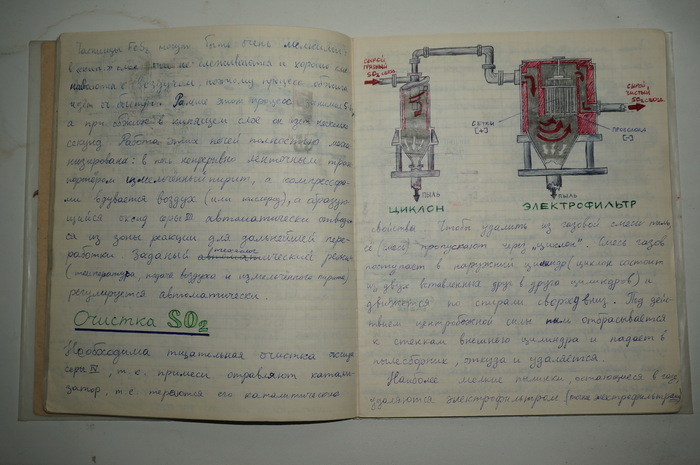 Частицы FeS₂ могут быть очень мелкими
в кипящ слое они не слеживаются и хорошо сме
с воздухом, поэтому процесс обжига
идёт оч. быстро. Раньше этот процесс занимал
а при обжиге в кипящем слое он идёт несколько
секунд. Работа этих печей полностью меха
низирована: в печь непрерывно ленточным транс
портёром измельчённый пирит, а компрессоро
ми вдувается воздух (или кислород), а образую
щийся оксид серы автоматически отводит
ся из зоны реакции для дальнейшей пере
работки. Заданый технологический режим
(температура, подача воздуха и измельчённого пирита)
регулируется автоматически.
Очистка SO₂
Необходима тщательная очистка оксида
серы IV, т.к. примеси отравляют катали-
затор, т.е. теряются его каталитические
СЫРОЙ,
ГРЯЗНЫЙ
SO₂
СЫРОЙ,
ЧИСТЫЙ
SO₂
СЕТКИ
[+]
ПРОВОЛОКА
[-]
ПЫЛЬ
ПЫЛЬ
ЦИКЛОН
ЭЛЕКТРОФИЛЬТР
свойства. Чтобы удалить из газовой смеси пыль
её пропускают через "циклон". Смесь газов
поступает в наружный цилиндр (циклон состоит
из двух вставленных друг в друга цилиндров) и
движется по спирали сверху вниз. Под дей-
ствием центробежной силы пыль отбрасывается
к стенкам внешнего цилиндра и падает в
пылесборник, откуда и удаляется.
Наиболее мелкие пылинки, остающиеся в газе,
удаляются электрофильтром